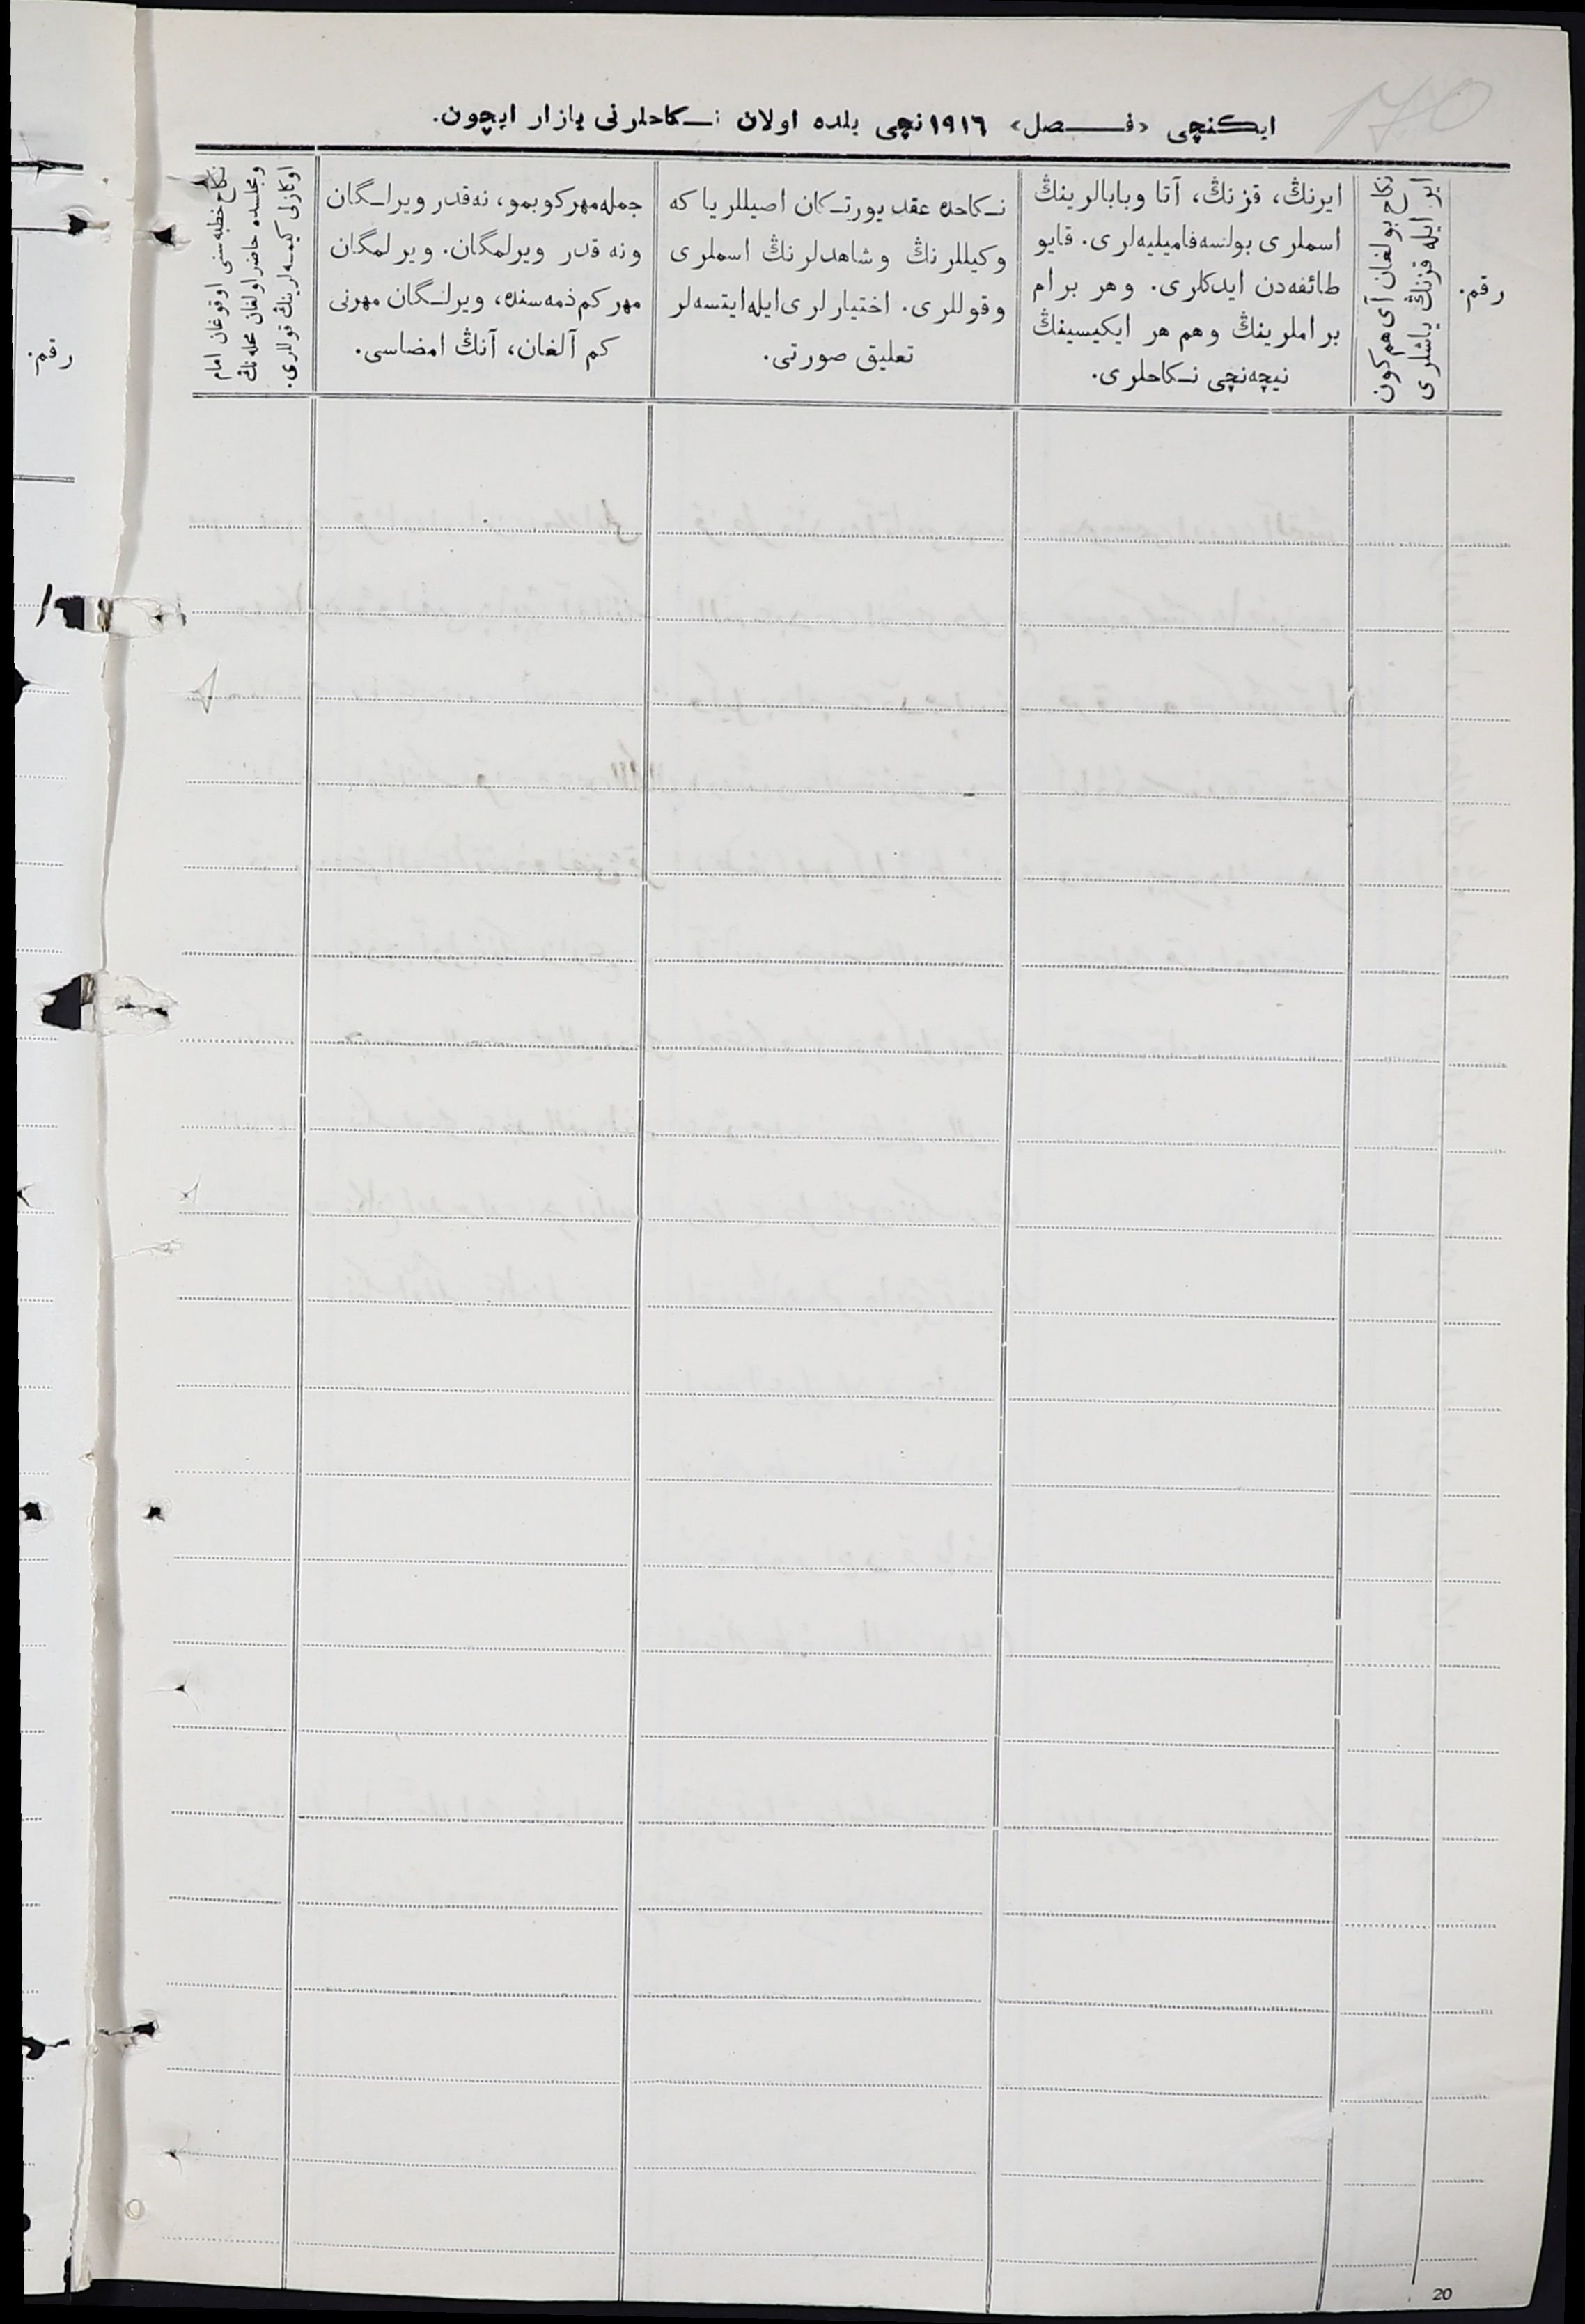 170
ایکنچی «فـــصل» ١٩١٦نچی یلده اولان نـکاحلرنی یازار ایچون.
رقم.
نکاح بولغان آی هم کون
ایر ایله قزنڭ یاشلری
ایرنڭ، قزنڭ، آتا وبابالرینڭ
اسملری بولنسه فامیلیه‌لری. قایو
طائفه‌دن ایدکلری. وهر برام
براملرینڭ وهم هر ایکیسینڭ
نیچه‌نچی نـکاحلری.
نـکاحده عقد یورتـکان اصیللر یا که
وکیللرنڭ وشاهدلرنڭ اسملری
وقوللری. اختیارلری ایله ایتسه‌لر
تعلیق صورتی.
جمله مهر کوبمو، نه‌قدر ویرلـگان
ونه قدر ویرلمگان. ویرلمگان
مهر کم ذمه‌سنده، ویرلـگان مهرنی
کم آلغان، آنڭ امضاسی.
نکاح خطبه‌سنی اوقوغان امام
ومجلسده حاضر اولغان محله‌نڭ
اوکازلی کیمسه‌لرینڭ قوللری.
رقم.
20